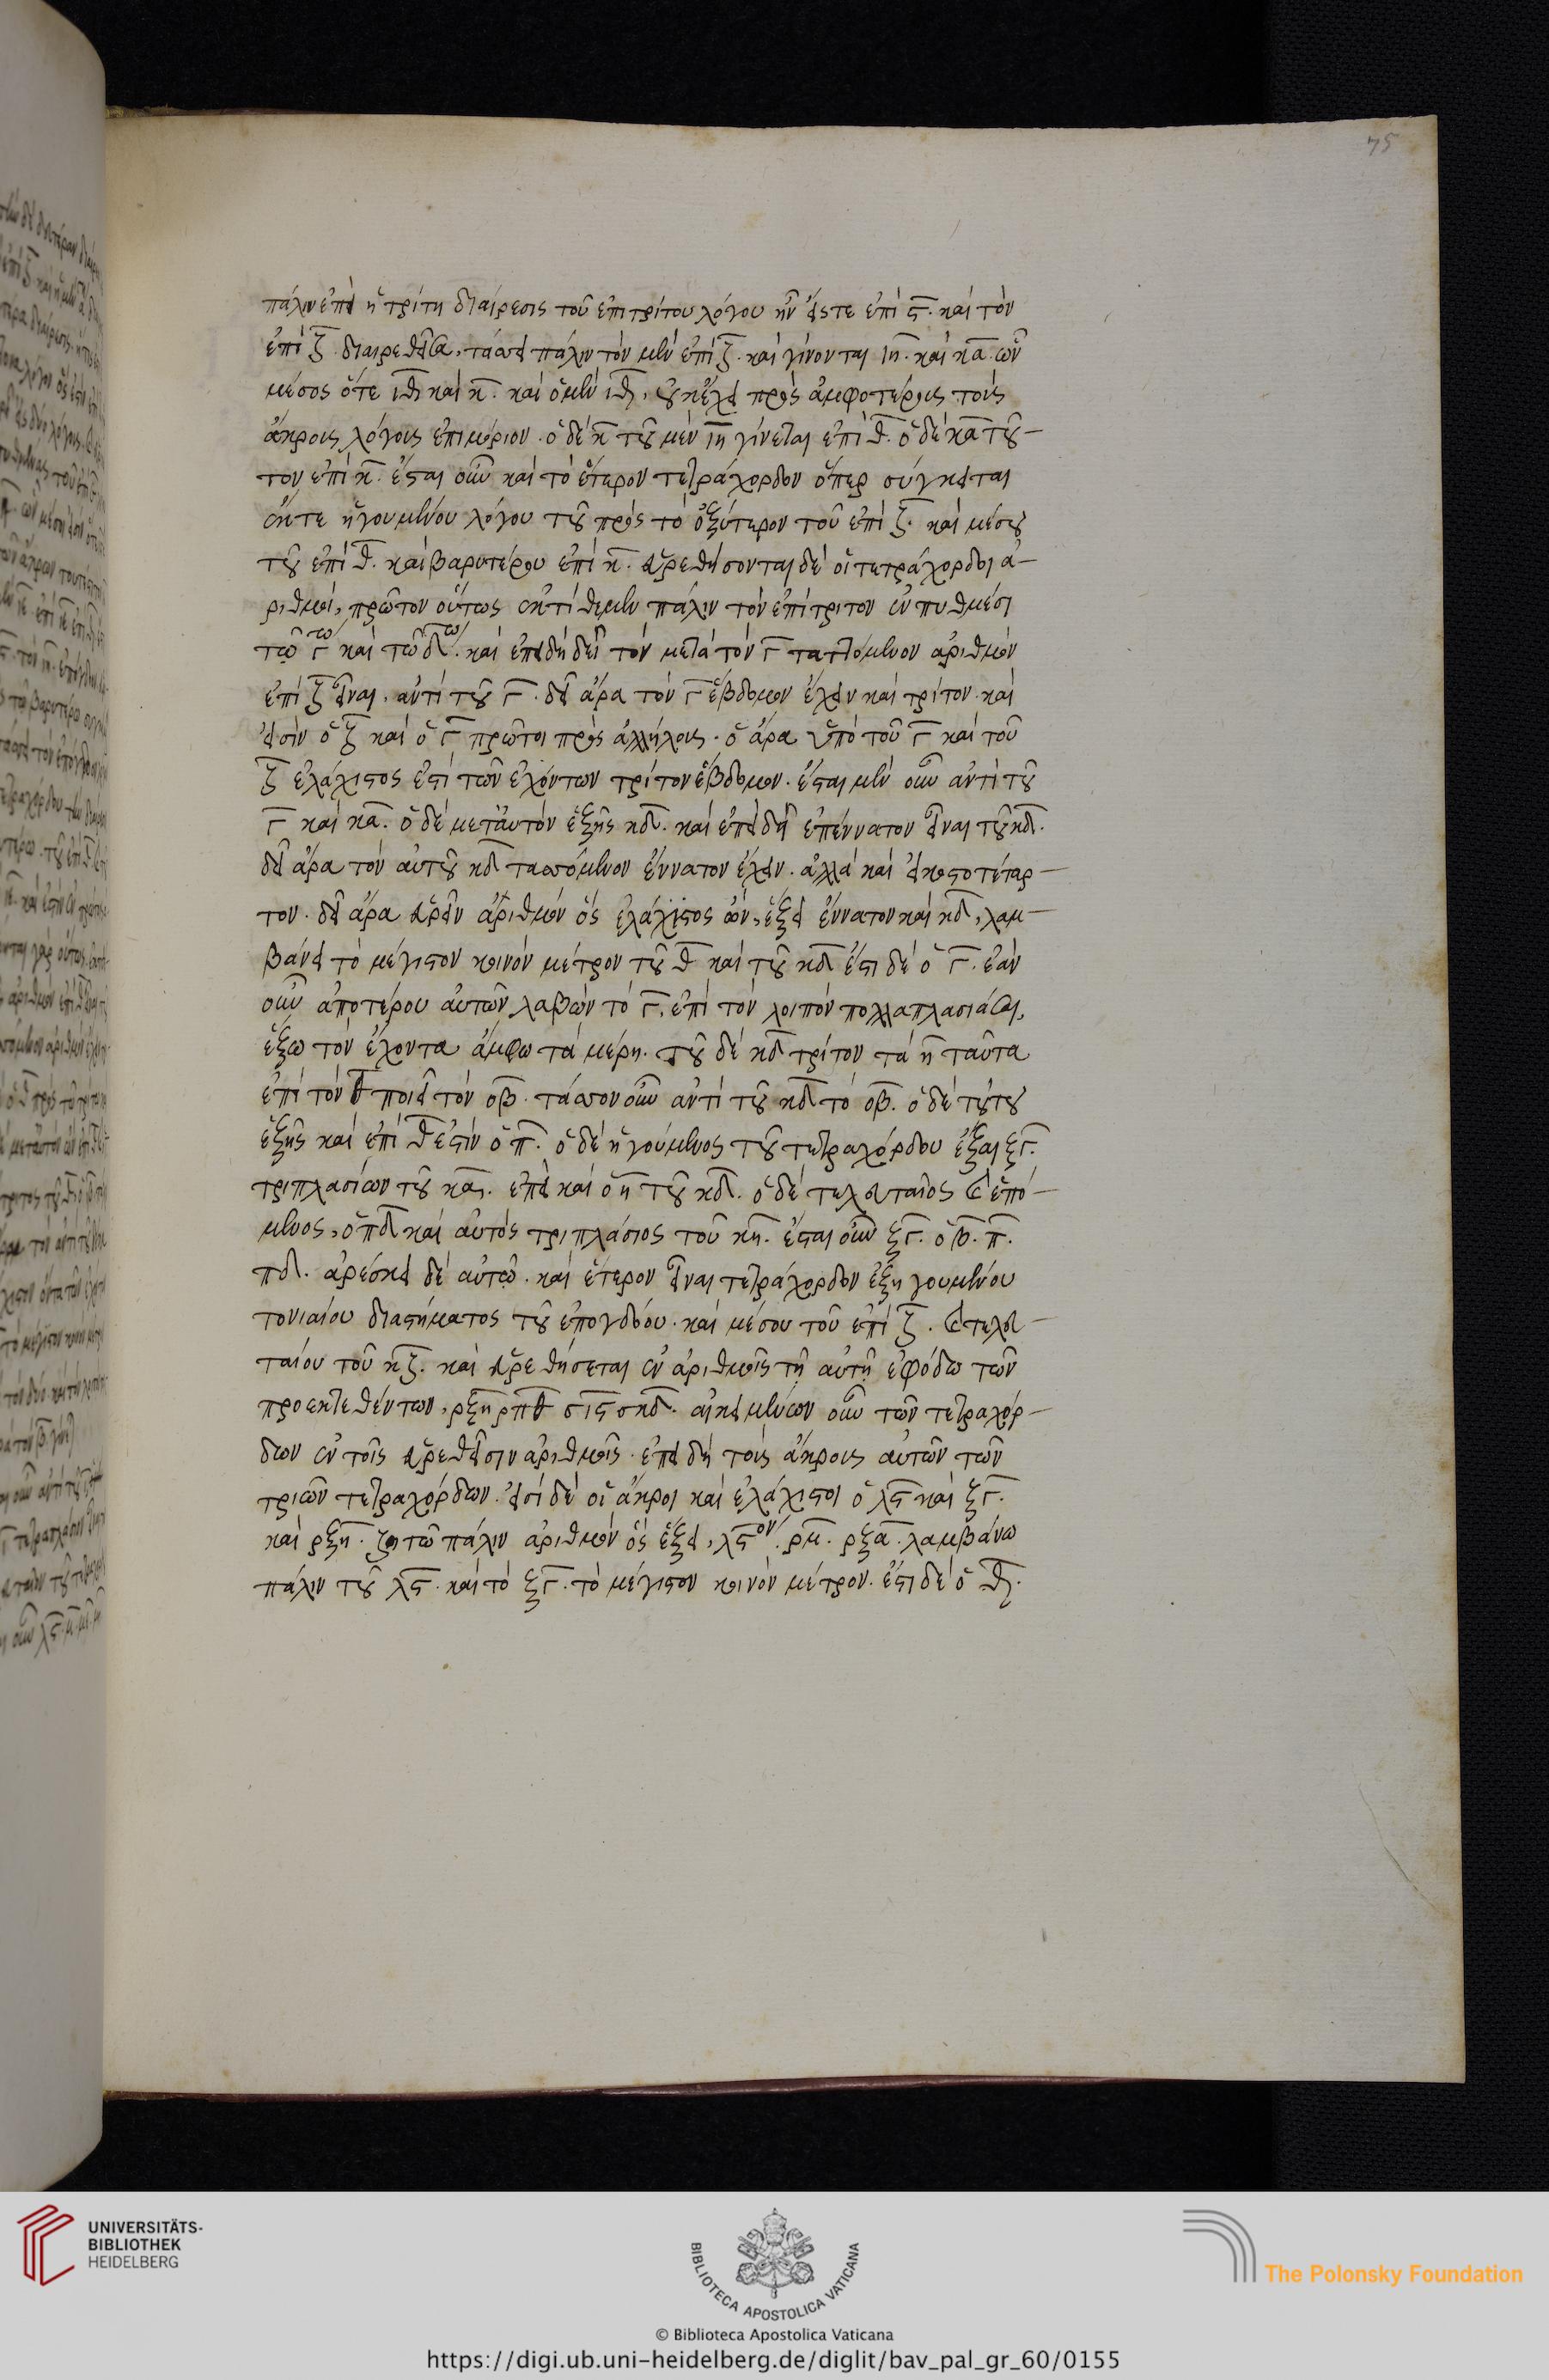 75
πάλιν ἐπεὶ ἡ τρίτη διαίρεσις τοῦ ἐπιτρίτου λόγου ἦν εἴς τε ἐπὶ ϛ̅. καὶ τὸν
ἐπὶ ζ̅ διαιρεθεῖσα, τάσσει πάλιν τὸν μὲν ἐπὶ ζ̅. καὶ γίνονται ιη̅. καὶ κα̅. ὧν
μέσος ὅτε ιθ̅ καὶ κ̅. καὶ ὁ μὲν ιθ̅, οὐκ ἔχει πρὸς ἀμφοτέρους τοὺς
ἄκρους λόγους ἐπιμόριον. ὁ δὲ κ̅ τοῦ μὲν ιη̅ γίνεται ἐπὶ θ̅. ὁ δὲ κα̅ τού-
του ἐπὶ κ̅. ἔσται οὖν καὶ τὸ ἕτερον τετράχορδον ὅπερ σύγκειται
ἔκ τε ἡγουμένου λόγου τοῦ πρὸς τὸ ὀξύτερον τοῦ ἐπὶ ζ̅. καὶ μέσου
τοῦ ἐπὶ θ̅. καὶ βαρυτέρου ἐπὶ κ̅. εὑρεθήσονται δὲ οἱ τετράχορδοι ἀ-
ριθμοί, πρῶτον οὕτως ἐκτίθεμεν πάλιν τὸν ἐπίτριτον ἐν πυθμέσι
τῷ γ̅ῳ καὶ τῷ δ̅ῳ. καὶ ἐπειδὴ δεῖ τὸν μετὰ τὸν γ̅ ταττόμενον ἀριθμὸν
ἐπὶ ζ̅ εἶναι. ἀντὶ τοῦ γ̅. δεῖ ἄρα τὸν γ̅ ἕβδομον ἔχειν καὶ τρίτον. καὶ
εἰσὶν ὁ ζ̅ καὶ ὁ γ̅ πρῶτοι πρὸς ἀλλήλους. ὁ ἄρα ὑπὸ τοῦ γ̅ καὶ τοῦ
ζ̅ ἐλάχιστος ἐστὶ τῶν ἐχόντων τρίτον ἕβδομον. ἔσται μὲν οὖν ἀντὶ τοῦ
γ̅ καὶ κα̅. ὁ δὲ μετ᾽ αὐτὸν ἑξῆς κδ̅. καὶ ἐπεὶ δεῖ ἐπέννατον εἶναι τοῦ κδ̅.
δεῖ ἄρα τὸν αὐτοῦ κδ̅ τασσόμενον ἔννατον ἔχειν. ἀλλὰ καὶ εἰκοστοτέταρ-
τον. δεῖ ἄρα εὑρεῖν ἀριθμὸν ὃς ἐλάχιστος ὢν, ἕξει ἔννατον καὶ κδ̅, λαμ-
βάνει τὸ μέγιστον κοινὸν μέτρον τοῦ θ̅ καὶ τοῦ κδ̅ ἔστι δὲ ὁ γ̅. ἐὰν
οὖν ἀποτέρου αὐτῶν λαβὼν τὸ γ̅, ἐπὶ τὸν λοιπὸν πολλαπλασιάσω,
ἕξω τὸν ἔχοντα ἄμφω τὰ μέρη. τοῦ δὲ κδ̅ τρίτον τὰ η̅ ταῦτα
ἐπὶ τὸν θ̅ ποιεῖ τὸν οβ̅. τάσσον οὖν ἀντὶ τοῦ κδ̅ τὸ οβ̅. ὁ δὲ τούτου
ἑξῆς καὶ ἐπὶ θ̅ ἐστὶν ὁ π̅. ὁ δὲ ἡγούμενος τοῦ τετραχόρδου ἕξαι ξγ̅.
τριπλασίων τοῦ κα̅. ἐπεὶ καὶ ὁ η̅ τοῦ κδ̅. ὁ δὲ τελευταῖος καὶ ἑπό-
μενος, ὁ πδ̅ καὶ αὐτὸς τριπλάσιος τοῦ κη̅. ἔσται οὖν ξγ̅. οβ̅. π̅.
πδ̅. ἀρέσκει δὲ αὐτῷ. καὶ ἕτερον εἶναι τετράχορδον ἐξηγουμένου
τονιαίου διαστήματος τοῦ ἐπογδόου. καὶ μέσου τοῦ ἐπὶ ζ̅. καὶ τελευ-
ταίου τοῦ κζ̅. καὶ εὑρεθήσεται ἐν ἀριθμοῖς τῇ αὐτῇ ἐφόδῳ τῶν
προεκτεθέντων, ρξη̅ ρπθ̅ σιϛ̅ σκδ̅. αἱ κειμένων οὖν τῶν τετραχόρ-
δων ἐν τοῖς εὑρεθεῖσιν ἀριθμοῖς. ἐπειδὴ τοὺς ἄκρους αὐτῶν τῶν
τριῶν τετραχόρδων. εἰσὶ δὲ οἱ ἄκροι καὶ ἐλάχιστοι ὁ λϛ̅ καὶ ξγ̅.
καὶ ρξη̅. ζητῶ πάλιν ἀριθμὸν ὃς ἕξει, λϛ̅ον. ρμ̅. ρξα̅. λαμβάνω
πάλιν τοῦ λϛ̅. καὶ τὸ ξγ̅. τὸ μέγιστον κοινὸν μέτρον. ἔστι δὲ ὁ θ̅.
UNIVERSITÄTS-
BIBLIOTHEK
HEIDELBERG
BIBLIOTECA APOSTOLICA VATICANA
© Biblioteca Apostolica Vaticana
The Polonsky Foundation
https://digi.ub.uni-heidelberg.de/diglit/bav_pal_gr_60/0155